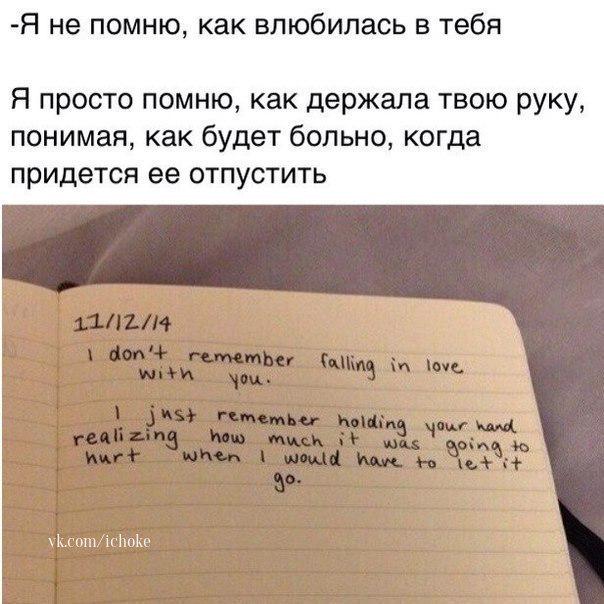 -Я не помню, как влюбилась в тебя
Я просто помню, как держала твою руку,
понимая, как будет больно, когда
придется ее отпустить
11/12/14
I don't remember falling in love
with you.
I just remember holding your hand
realizing how much it was going to
hurt when I would have to let it
go.
vk.com/ichoke